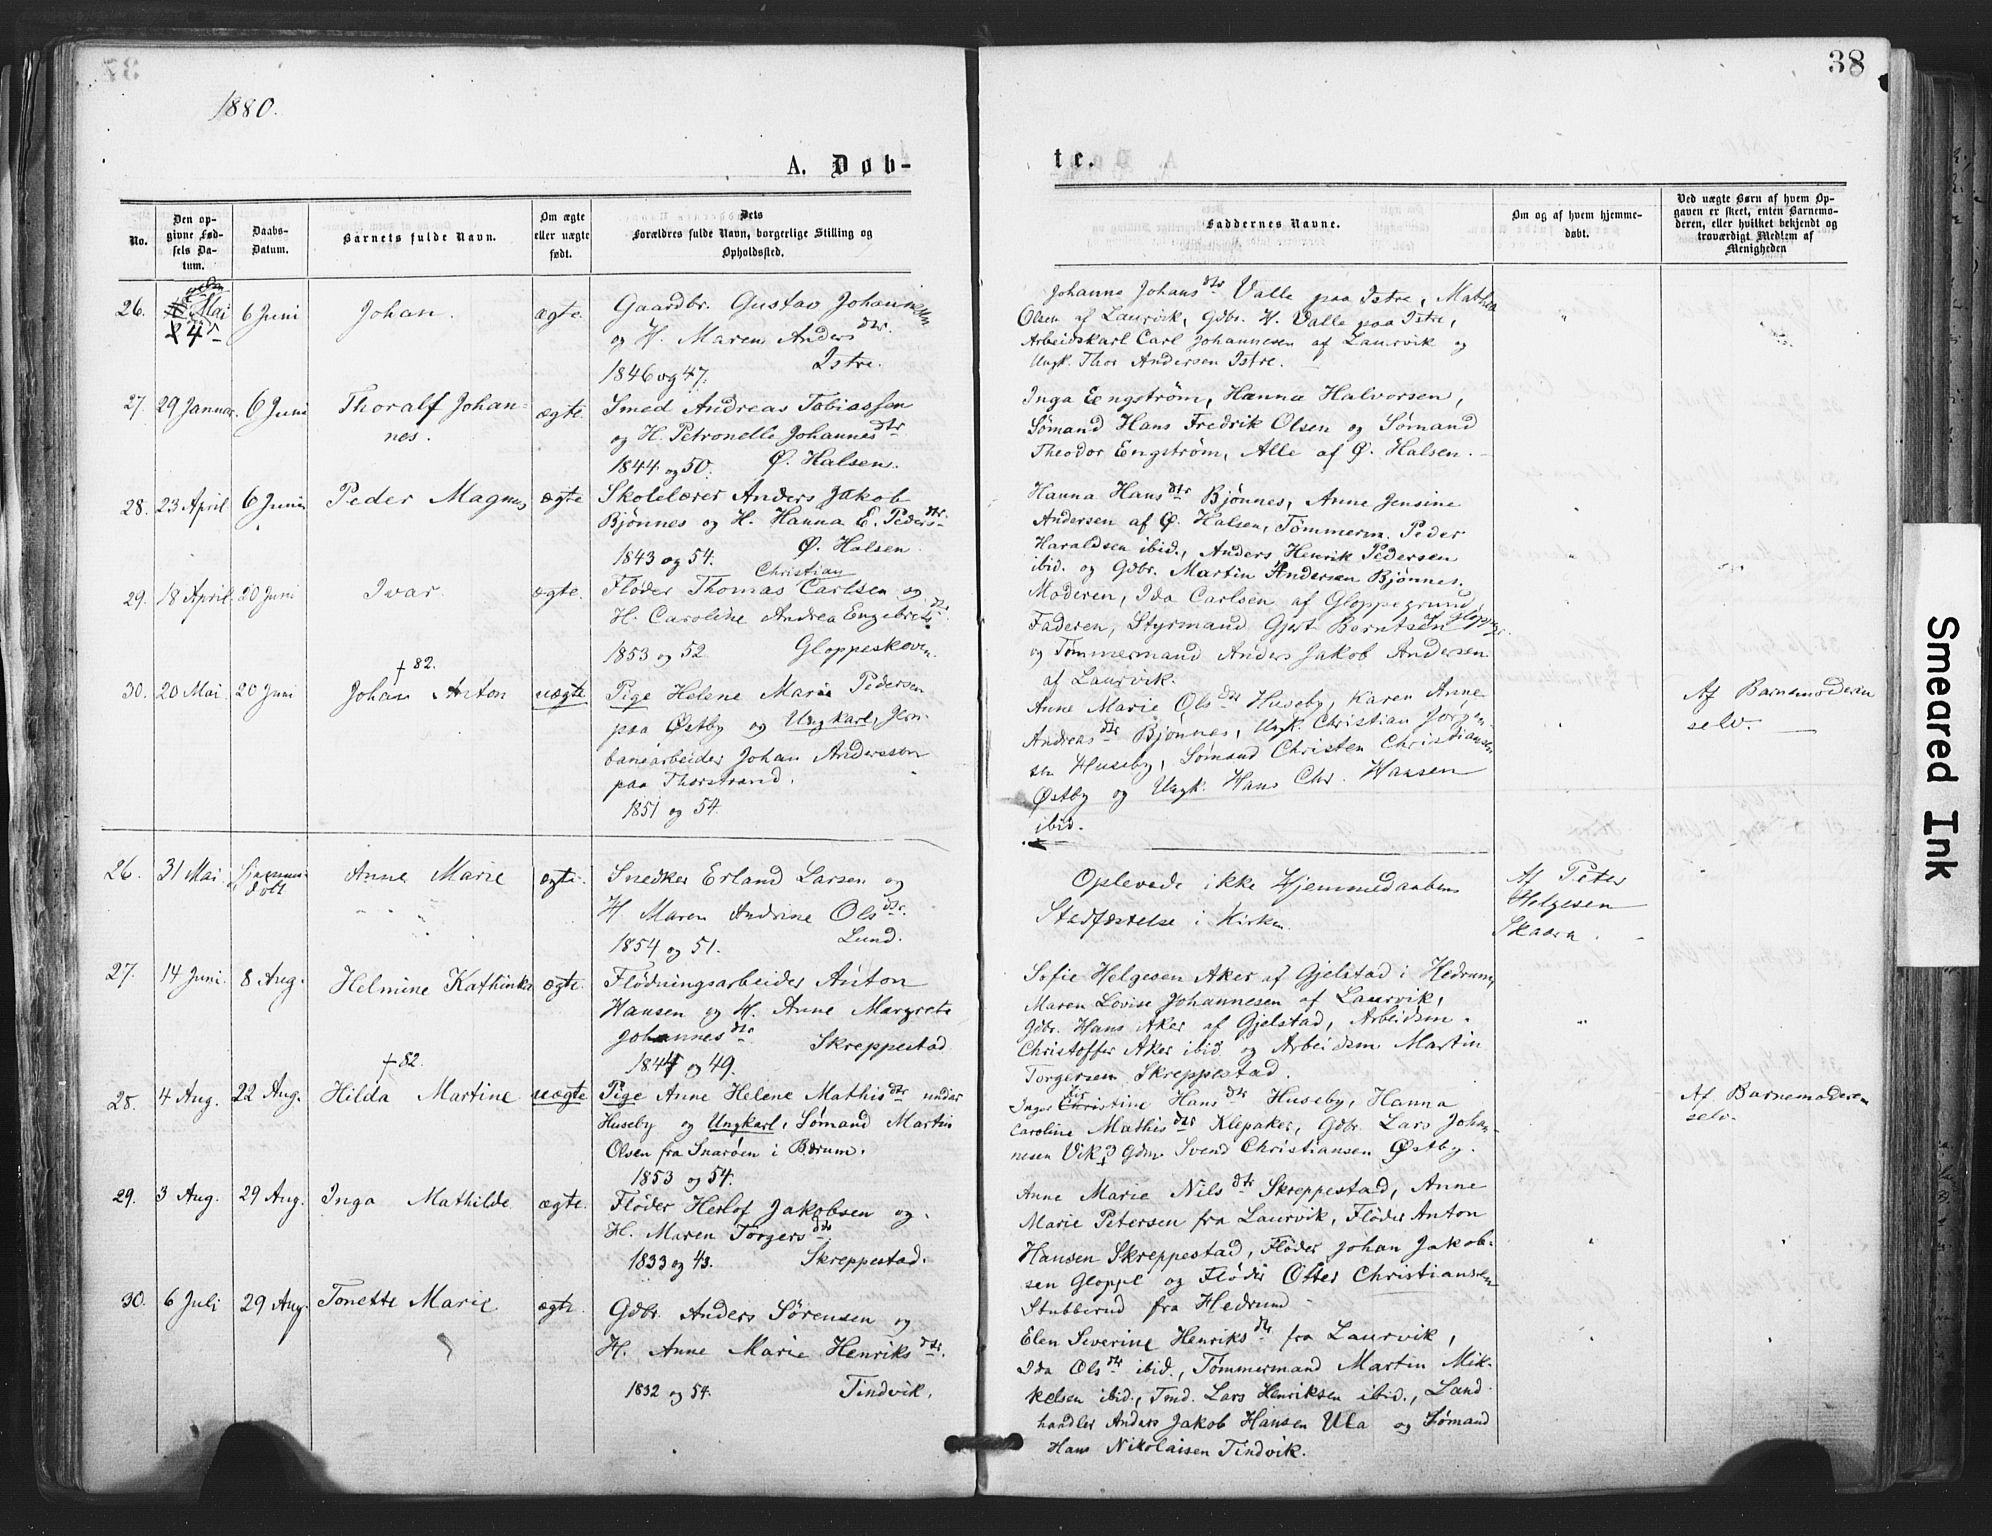 38
1880.
A. Døb-
te.
No.
Den op-
givne Fød-
sels Da-
tum.
Daabs-
Datum.
Barnets fulde Navn.
Om ægte
eller uægte
født.
Dets
Forældres fulde Navn, borgerlige Stilling og
Opholdssted.
Faddernes Navne.
Om og af hvem hjemme-
døbt.
Ved uægte Børn af hvem Op-
gaven er skeet, enten Barnemo-
deren, eller hvilket bekjendt og
troværdigt Medlem af
Menigheden
26. Mai 6 Juni Johan. ægte.
24
Gaardbr. Gustav Johannessen
og H. Maren Andersdtr.
1846 og 47. Istre.
Johanne Johansdtr Valle paa Istre, Mathea
Olsen af Laurvik, Gdbr. H. Valle paa Istre,
Arbeidskarl Carl Johannesen af Laurvik og
Ungk. Thor Andersen Istre.
27. 29 Januar. 6 Juni Thoralf Johan-
nes. ægte.
Smed Andreas Tobiassen
og H. Petronelle Johannesdtr
1844 og 50. Ø. Halsen.
Inga Engström, Hanna Halvorsen,
Sømand Hans Fredrik Olsen og Sømand
Theodor Engström, Alle af Ø. Halsen.
28. 23 April 6 Juni Peder Magnus ægte
Skolelærer Anders Jakob
Bjønnes og H. Hanna E. Pedersdtr.
1843 og 54. Ø. Halsen.
Hanna Hansdtr Bjønnes, Anne Jensine
Andersen af Ø. Halsen, Tömmerm. Peder
Haraldsen ibid., Anders Henrik Pedersen
ibid. og Gdbr. Martin Andersen Bjønnes.
29. 18 April. 20 Juni Ivar ægte.
Christian
Fløder Thomas Carlsen og
H. Caroline Andrea Engebretsdtr.
1853 og 52 Gloppeskoven.
Moderen, Ida Carlsen af Gloppegrund,
Faderen, Styrmand Gjert Berntsen
og Tømmermand Anders Jakob Andersen
af Laurvik.
† 82.
30. 20 Mai 20 Juni Johan Anton uægte
Pige Helene Marie Pedersen
paa Østby og Ungkarl, Jern-
banearbeider Johan Anderssen
paa Thorstrand.
1851 og 54.
Anne Marie Olsdtr Huseby, Karen Anne
Andreasdtr Bjønnes, Ungk. Christian Jörgen-
sen Huseby, Sømand Christen Christiansen
Østby og Ungk. Hans Chr. Hansen
ibid.
Af Barnemoderen
selv.
26. 31 Mai Anne Marie ægte.
døbt
Snedker Erland Larsen og
H. Maren Andrine Olsdtr.
1854 og 51. Lund.
Oplevede ikke Hjemmedaabens
Stadfæstelse i Kirken.
Af Peter
Helgesen
Skaara.
27. 14 Juni. 8 Aug. Helmine Kathinka ægte.
Flödningsarbeider Anton
Hansen og H. Anne Margrete
Johannesdtr Skreppestad
1844 og 49.
Sofie Helgesen Aker af Gjelstad i Hedrum,
Maren Lovise Johannesen af Laurvik,
Gdbr. Hans Aker af Gjelstad, Arbeidsm.
Christoffer Aker ibid og Arbeidsm Martin
Torgersen Skreppestad.
† 82.
28. 4 Aug. 22 Aug. Hilda Martine uægte
Pige Anne Helene Mathisdtr under
Huseby og Ungkarl, Sømand Martin
Olsen fra Snarøen i Bærum.
1853 og 54.
Inger Christine Hansdtr Huseby, Hanna
Caroline Mathisdtr Klepaker, Gdbr. Lars Johan-
nesen Vik og Gdm Svend Christiansen Østby.
Af Barnemoderen
selv.
29. 3 Aug. 29 Aug. Inga Mathilde ægte.
Fløder Herlof Jakobsen og
H. Maren Torgersdtr.
1833 og 43. Skreppestad.
Anne Marie Nilsdtr Skreppestad, Anne
Marie Petersen fra Laurvik, Fløder Anton
Hansen Skreppestad, Fløder Johan Jakob-
sen Gloppe og Fløder Offer Christiansen
Stubberud fra Hedrum
30. 6 Juli 29 Aug. Tonette Marie ægte.
Gdbr. Anders Sørensen og
H. Anne Marie Henriksdtr.
1832 og 54. Tindvik.
Elen Severine Henriksdtr fra Laurvik,
Ida Olsdtr ibid., Tømmermand Martin Mik-
kelsen ibid., Tmd. Lars Henriksen ibid., Land-
handler Anders Jakob Hansen Ula og Sømand
Hans Nikolaisen Tindvik.
Smeared Ink